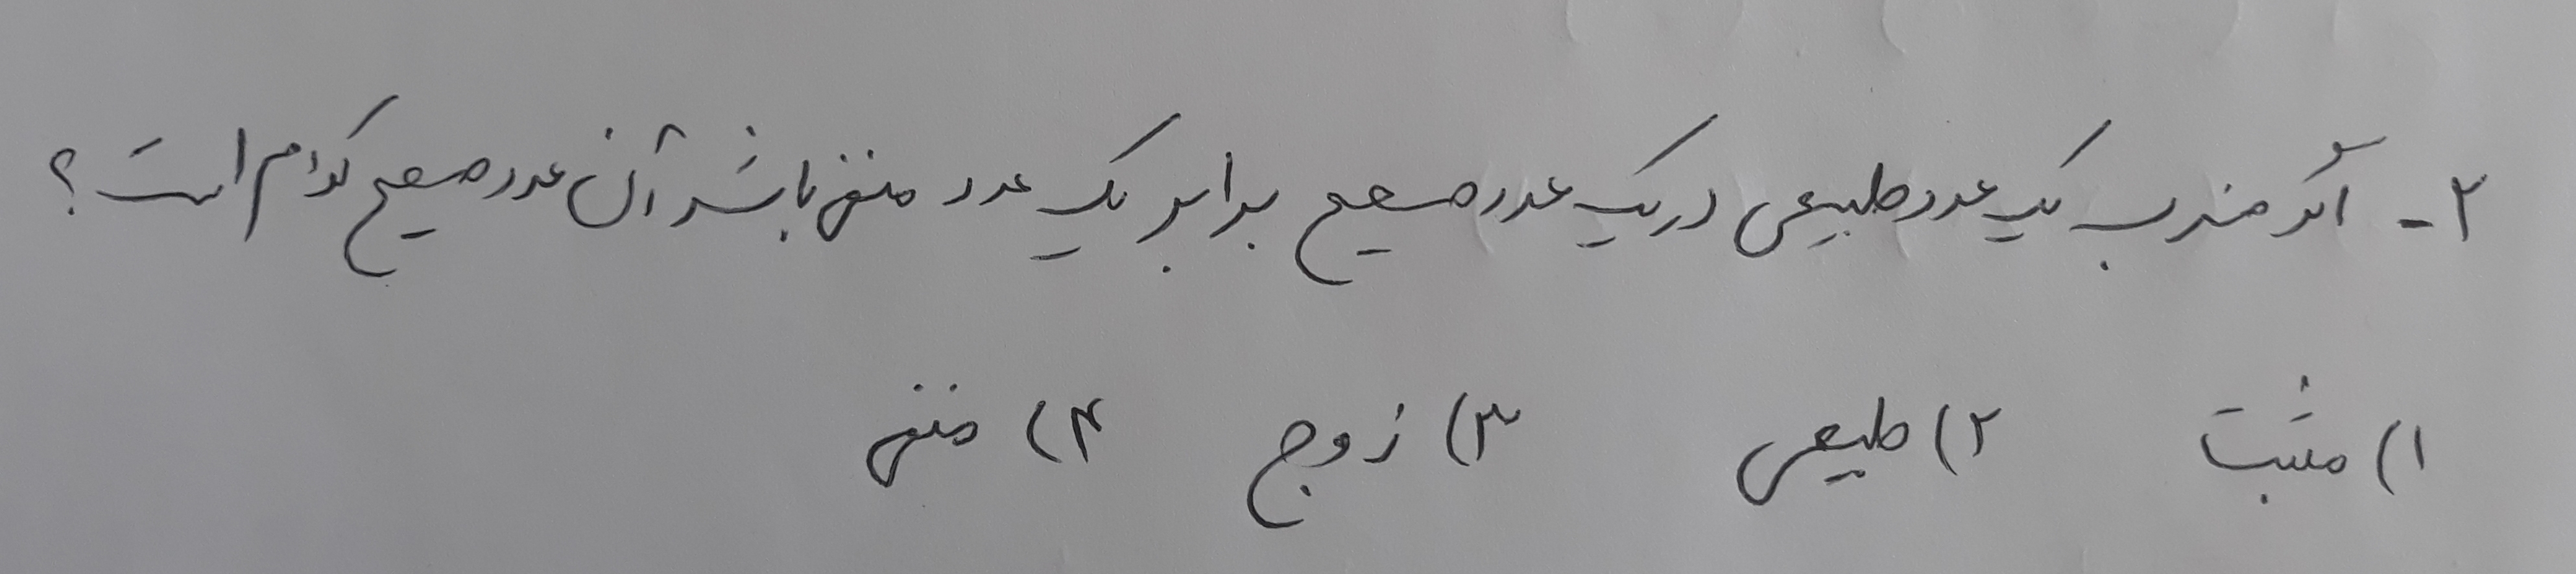 ۲- اگر ضرب یک عدد طبیعی در یک عدد صحیح برابر یک عدد منفی باشد آن عدد صحیح کدام است؟
۱) مثبت ۲) طبیعی ۳) زوج ۴) منفی